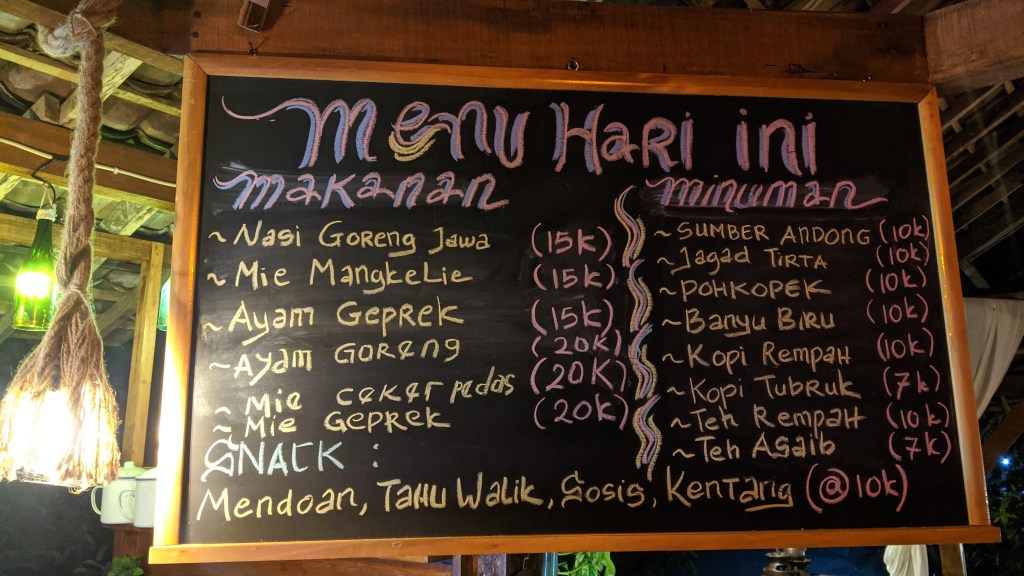 Menu Hari ini
makanan
~ Nasi Goreng Jawa (15k)
~ Mie MangkeLie (15k)
~ Ayam Geprek (15k)
~ Ayam Goreng (20k)
~ Mie ceker pedas (20K)
~ Mie Geprek (20k)
minuman
~ SUMBER ANDONG (10k)
~ Jagad TIRTA (10k)
~ POHKOPEK (10k)
~ Banyu BIRU (10k)
~ Kopi Rempah (10k)
~ Kopi Tubruk (7k)
~ Teh Rempah (10k)
~ Teh Agaib (7k)
SNACK :
Mendoan, TAHU Walik, Sosis, Kentang (@10k)